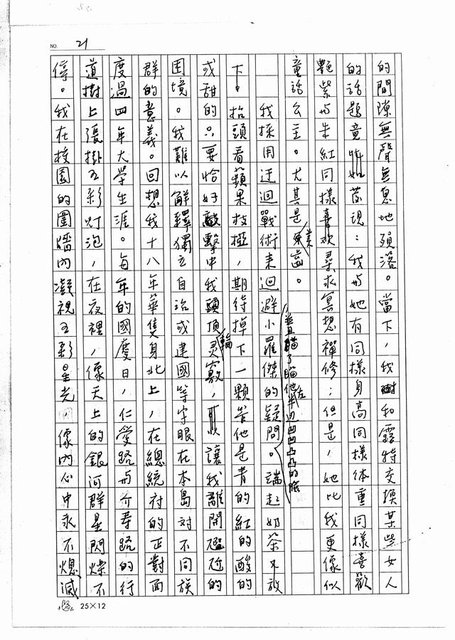 NO. 21
的間隙無聲無息地殞落。當下，我和露特交換某些女人
的話題竟如此荒唐：我與她有同樣身高同樣體重同樣喜歡
艷紫與朱紅同樣喜歡尋求冥想禪修；但是，她比我更像似
童話公主。尤其是美面。
我採用迂迴戰術來迴避小羅傑的疑問。端起奶茶又放
下。抬頭看蘋果枝椏，期待掉下一顆管他是青的紅的酸的
或甜的只要恰好敲擊中我頭頂靈竅，讓我離開尷尬的
困境。我難以解釋獨立自治或建國等字眼在本島對不同族
群的意義。回想我十八年華隻身北上，在總統府的正對面
度過四年大學生涯。每年的國慶日，仁愛路與介壽路的行
道樹上張掛五彩燈泡，在夜裡，像天上的銀河群星閃爍不
停。我在校園的圍牆內凝視五彩星光，像內心中永不熄滅
25×12